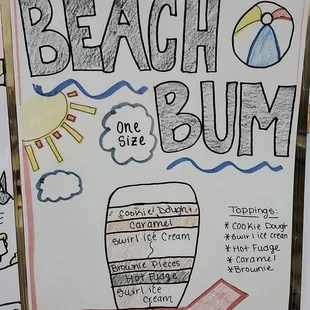 BEACH
BUM
One
Size
Cookie Dough
Caramel
Swirl ice Cream
Brownie Pieces
Hot Fudge
Swirl ice
Cream
Toppings:
* Cookie Dough
* Swirl ice cream
* Hot Fudge
* Caramel
* Brownie